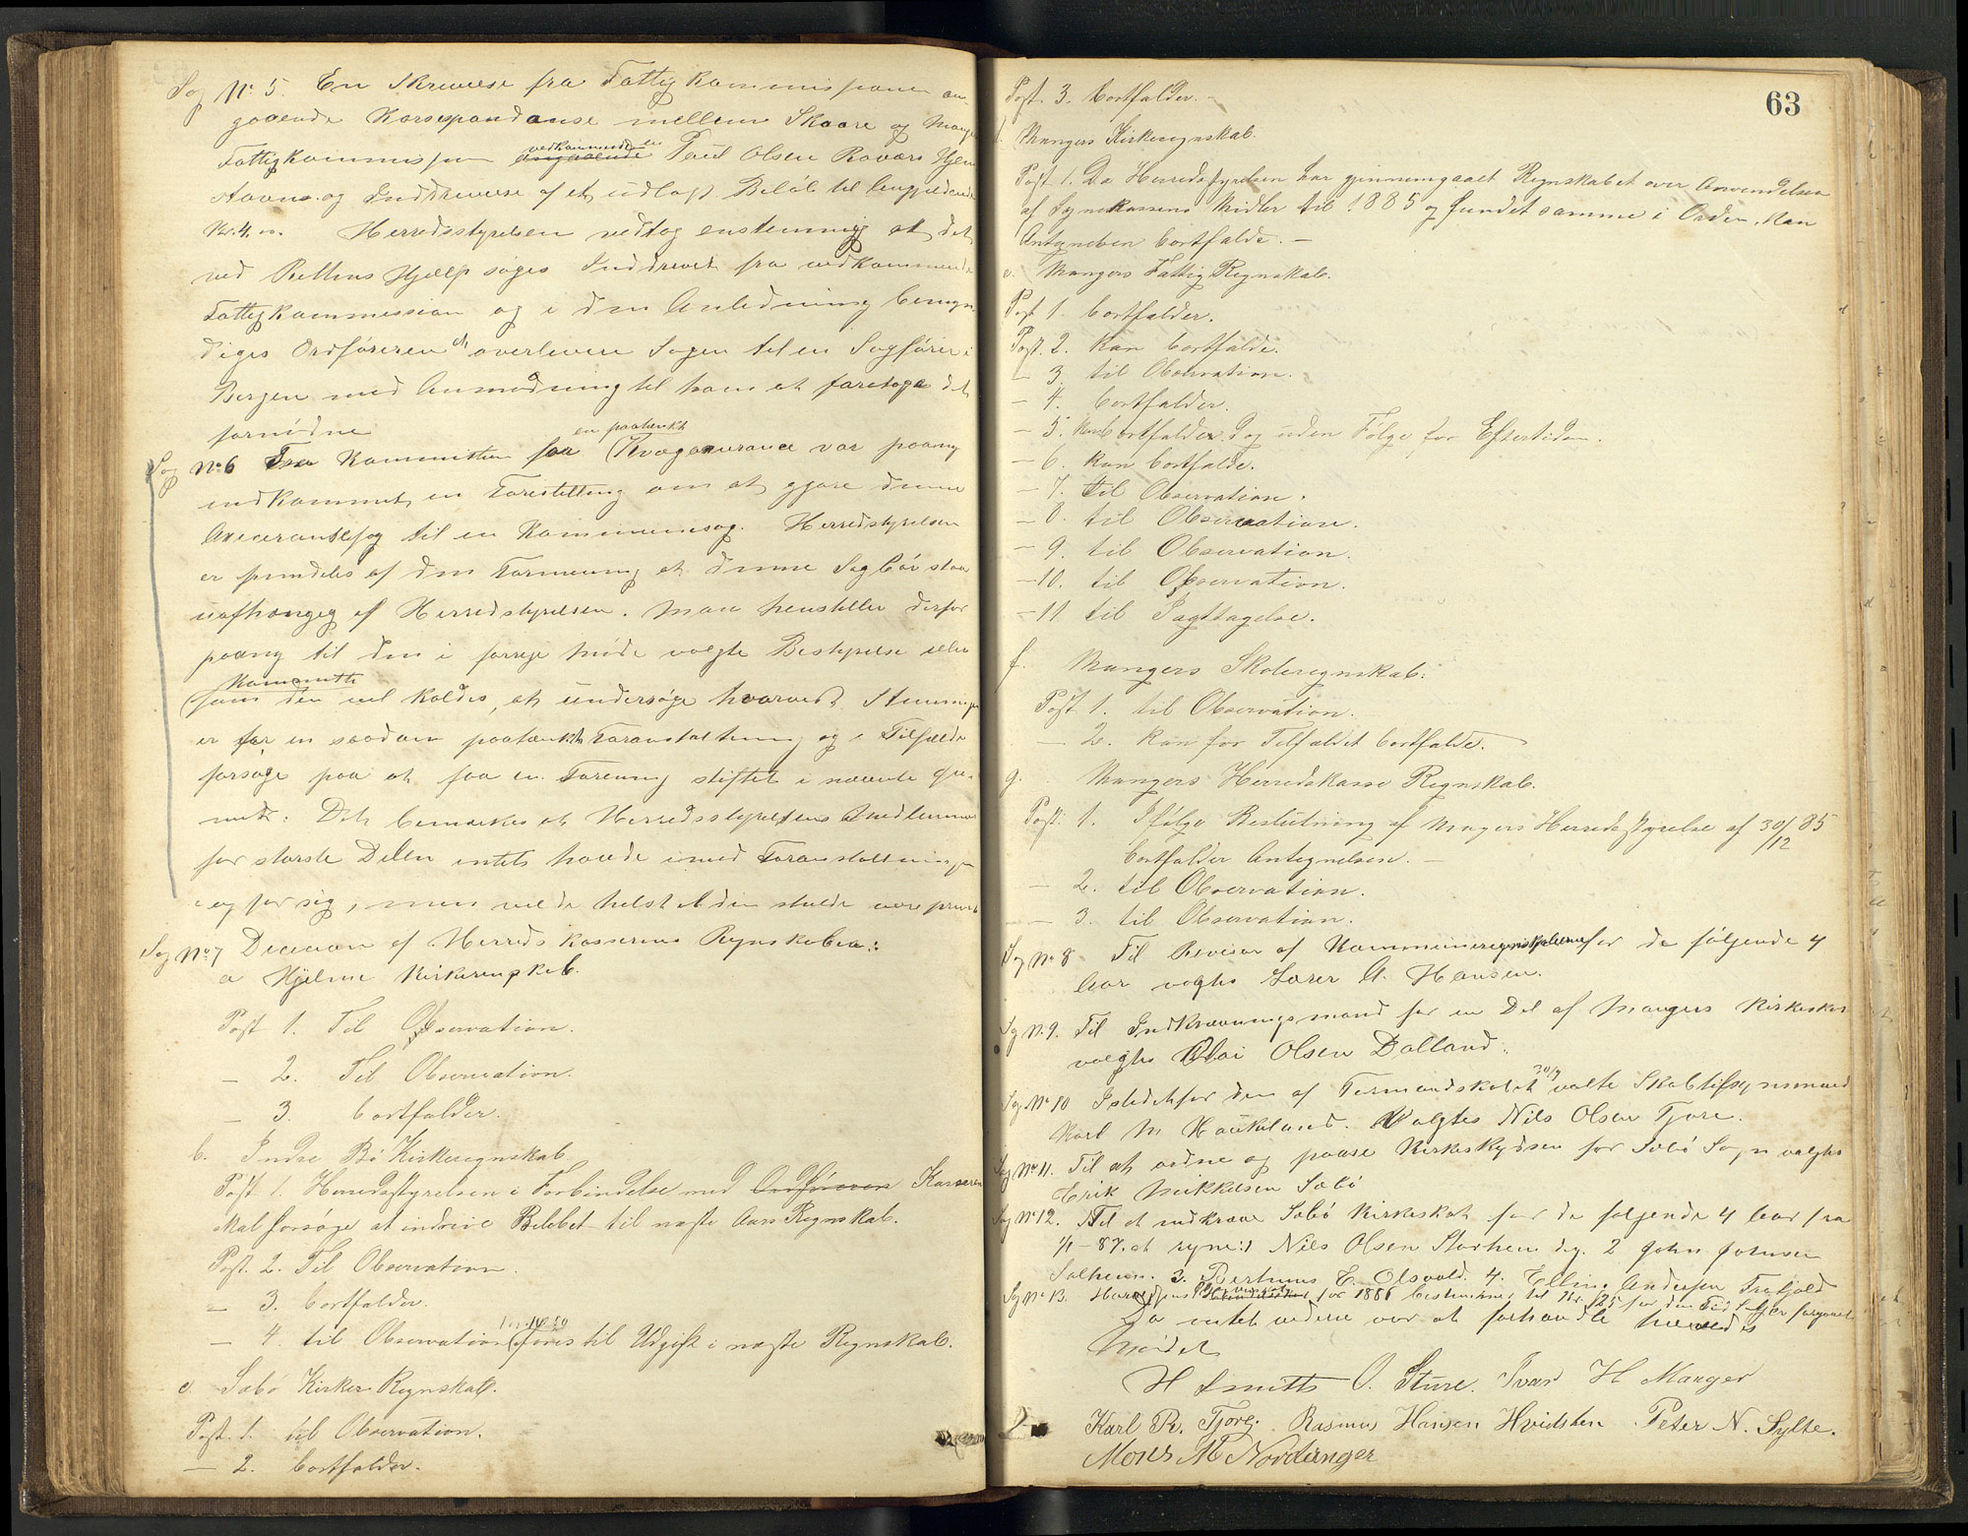 Sag No 5. En Skrivelse fra Fattigkommissionen an-
gaaende Korrespondanse mellem Skaare og Manger
Fattigkommission vedkommende en Poul Olsen Rovær Hjem
stavns og Inddrivelse af et udlagt Beløb til Lægpleiende
Kr. 4. Herredsstyrelsen vedtog enstemmig at det
ved Rettens Hjælp søges Inddrevet fra vedkommende
Fattigkommission og i den Anledning bemyn
diges Ordføreren at overlevere Sagen til en Sagfører i
Bergen med Anmodning til ham at foretage det
fornødne
Sag No 6 Fra Kommitteen for en paatænkt Kvægassurance var paany
indkommet en Forestilling om at gjøre denne
Assurancesag til en Kommunesag. Herredstyrelsen
er fremdeles af den Formening at denne Sag bør staa
uafhængig af Herredstyrelsen. Man henstiller derfor
paany til den i forrige Møde valgte Bestyrelse eller
Kommitte
som den vel kaldes, at undersøge hvorvidt Stemningen
er for en saadan paatænkt Foranstaltning og i Tilfælde
forsøge paa at faa en Forening stiftet i nævnte Øie-
med. Det bemærkes at Herredsstyrelsens Medlemmer
for største Delen intet havde imod Foranstaltningen
i og for sig, men vilde helst at den skulde være privat
Sag No 7 Decision af Herredskassernes Regnskaber:
a Hjelme Kirkeregnskab.
Post 1. Til Observation.
- 2. Til Observation.
- 3. bortfalder.
b. Indre Bø Kirkeregnskab
Post 1. Herredsstyrelsen i Forbindelse med Ordføreren Kasseren
skal forsøge at indrive Beløbet til næste Aars Regnskab.
Post. 2. Til Observation.
- 3. bortfalder.
- 4. til Observation føres til Udgift i næste Regnskab.
c. Sæbø Kirkes Regnskab.
Post. 1. til Observation.
- 2. bortfalder.
63
Post. 3. bortfalder. -
d. Mangers Kirkeregnskab.
Post 1. Da Herredsstyrelsen har gjennemgaaet Regnskabet over Anvendelsen
af Synekassens Midler til 1885 og fundet samme i Orden, kan
Antegnelsen bortfalde. -
e. Mangers Fattig Regnskab.
Post 1. bortfalder.
Post. 2. kan bortfalde.
- 3. til Observation.
- 4. bortfalder.
- 5. kan bortfalder dog uden Følge for Eftertiden.
- 6. kan bortfalde.
- 7. til Observation.
- 8. til Observation.
- 9. til Observation.
- 10. til Observation.
- 11 til Iagttagelse.
f. Mangers Skoleregnskab.
Post 1. til Observation.
- 2. kan for Tilfældet bortfalde.
g. Mangers Herredskasse Regnskab.
Post. 1. Ifølge Beslutning af Mangers Herredsstyrelse af 30/12 85
bortfalder Antegnelsen. -
- 2. til Observation.
- 3. til Observation.
Sag No 8 Til Revisor af Kommuneregnskaberne for de følgende 4
Aar valgtes Lærer A. Hansen.
Sag N. 9. Til Indkrævningsmand for en Del af Mangers Kirkeskat
valgtes Olai Olsen Dalland.
Sag. No 10 Istedetfor den af Formandskabet 30/9 valte Skatlifsynsmand
Karl M Haukeland. Valgtes Nils Olsen Tjore.
Sag No 11. Til at ordne og paase Kirkeskydsen for Sæbø Sogn valgtes
Erik Mikkelsen Sæbø
Sag No 12. Til at indkræve Sæbø Kirkeskat for de følgende 4 Aar fra
1/1 - 87. at regne: 1 Nils Olsen Storheim dg. 2 John Johnsen
Solheim. 3. Bertinus E. Olsvold. 4. Elling Andersen Trefjold
Sag No 13. for 1886 bestemmes til Kr 125 for den Tid
Da intet videre var at forhandle hævedes
Mødet
H Smitts O. Sture. Ivar H Manger
Karl R. Tjore. Rasmus Hansen Hvidsten Peter N. Sylte.
Mons M Nordanger